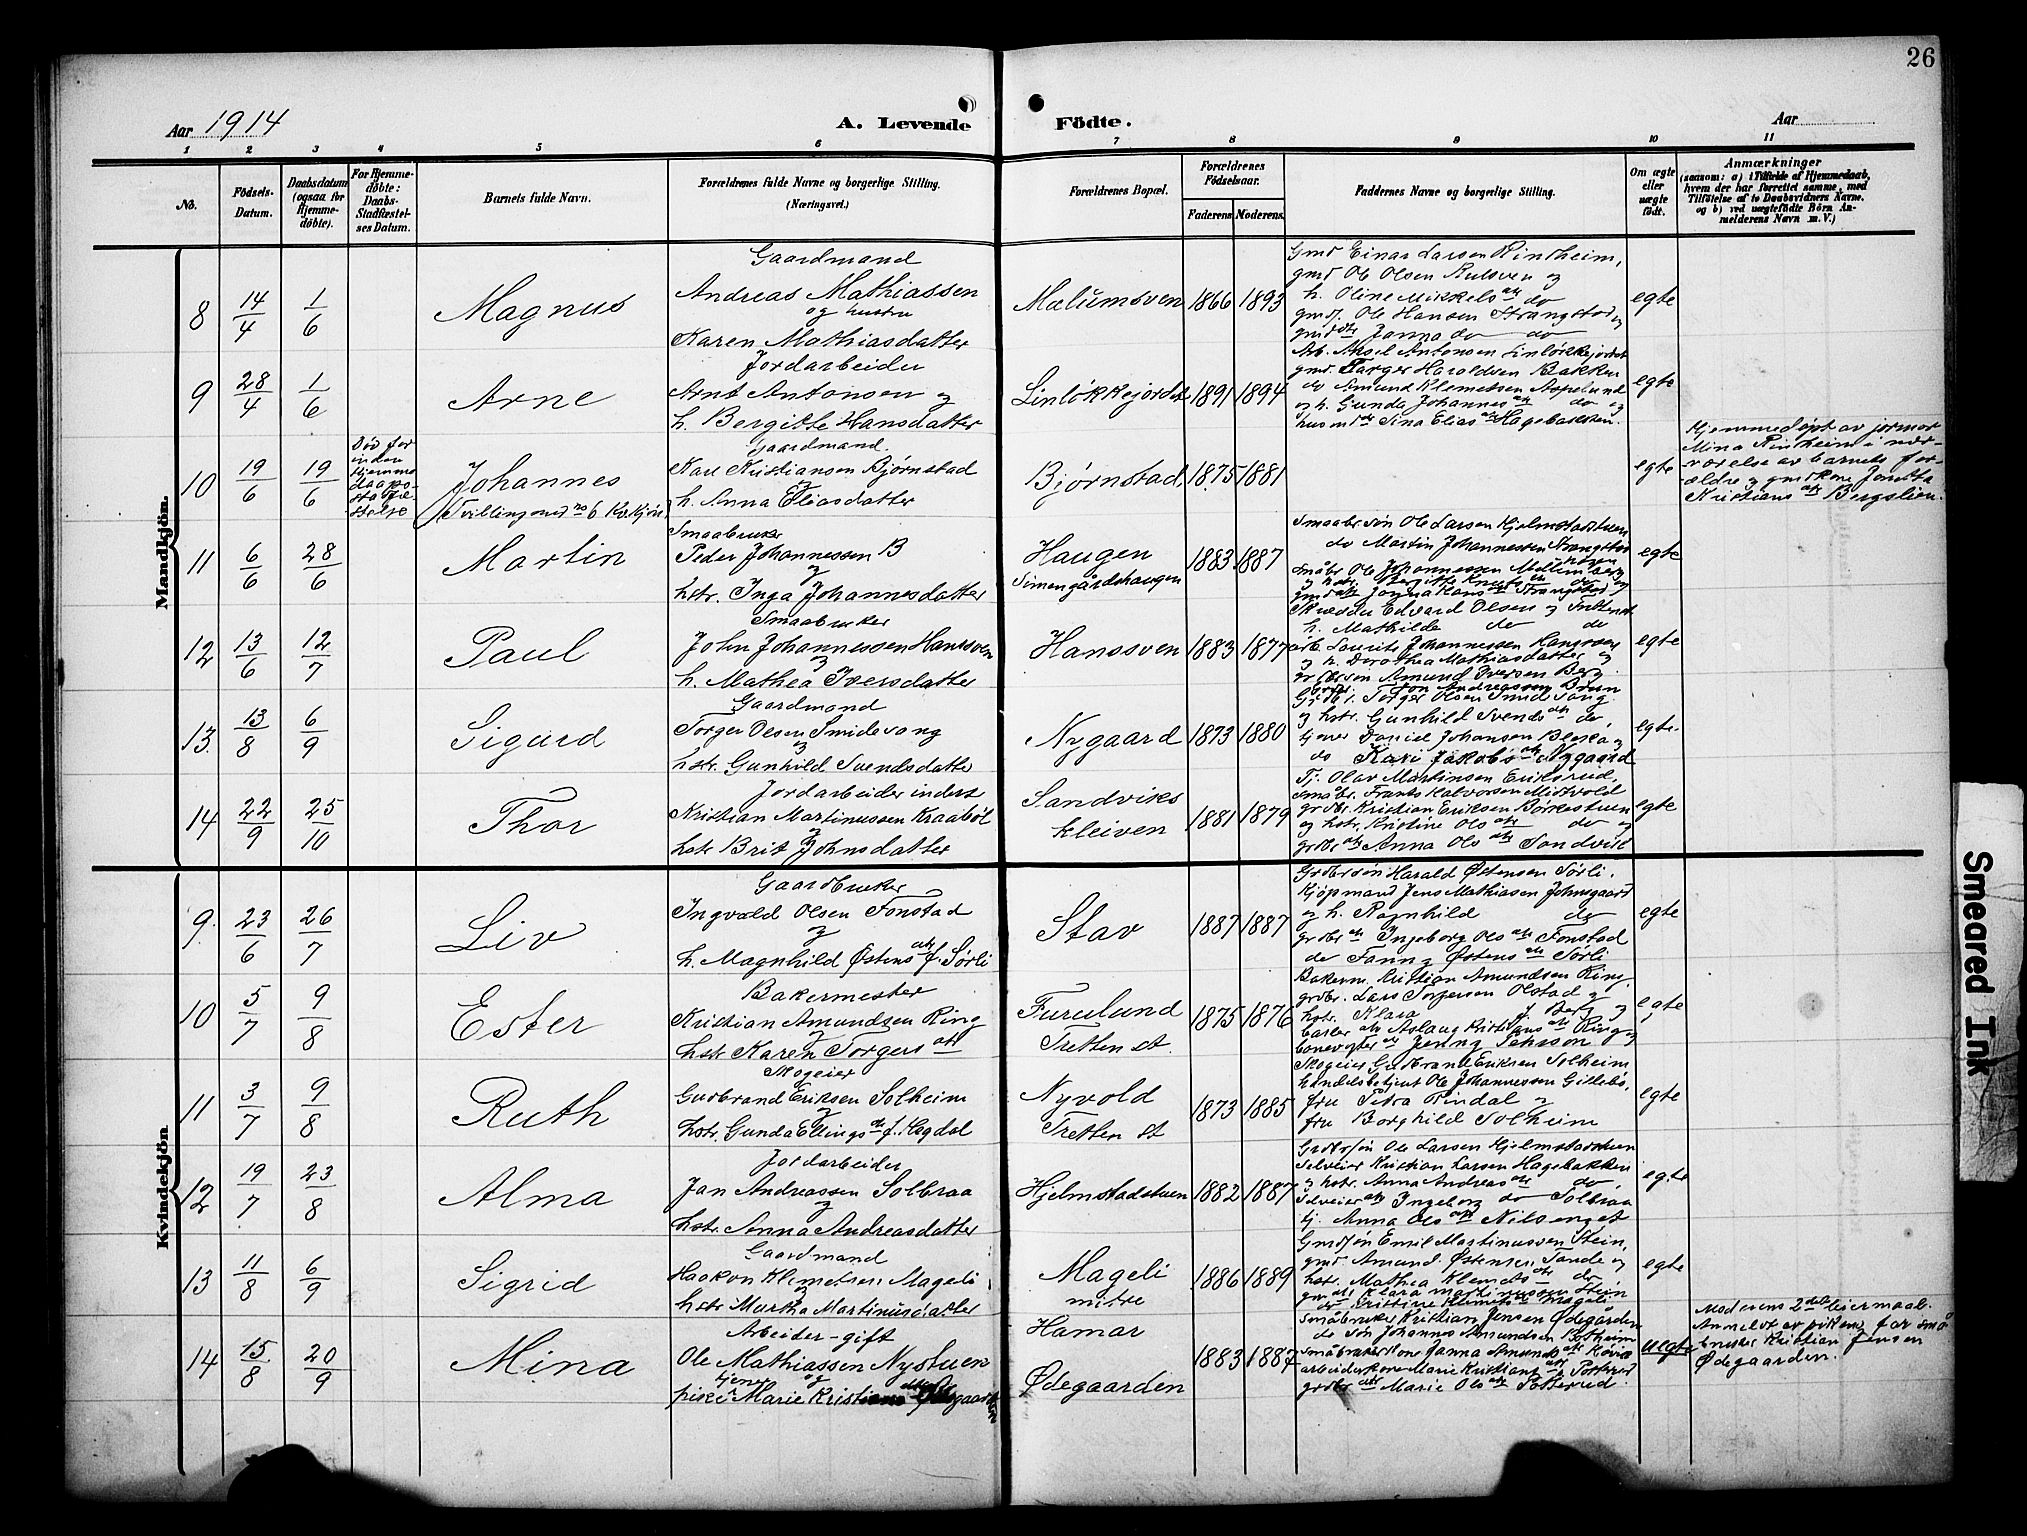 26
Aar 1914
A. Levende Födte.
Aar
1 2 3 4 5 6 7 8 9 10 11
No.
Födsels-Datum.
Daabsdatum (ogsaa for Hjemme-döbte).
For Hjemme-döbte: Daabs-Stadfæstel-ses Datum.
Barnets fulde Navn.
Forældrenes fulde Navne og borgerlige Stilling. (Næringsvei.)
Forældrenes Bopæl.
Forældrenes Födselsaar.
Faderens. Moderens.
Faddernes Navne og borgerlige Stilling.
Om ægte eller uægte födt.
Anmærkninger
(saasom: a) i Tilfælde af Hjemmedaab,
hvem der har forrettet samme, med
Tilföielse af to Daabsvidners Navne.
og b) ved uægtefödte Börn An-
melderens Navn m. V.)
Mandkjön.
8 14/4 1/6 Magnus
Gaardmand
Andreas Mathiassen
og hustru
Karen Mathiasdatter
Mælumsven 1866 1893
Gmd Einar Larsen Rindheim,
gmd Ole Olsen Rulsven og
h. Oline Mikkelsdtr do
gmdsøn Ole Hansen Strangstad og
gmddtr Janna do do
egte
9 28/4 1/6 Arne
Jordarbeider
Arnt Antonsen og
h. Bergitte Hansdatter
Linløkkejordet 1891 1894
Arb. Aksel Antonsen Linløkkejordet
gmd. Targer Haroldsen Bakken
do Amund Klemetsen Aspelund
og h. Gunda Johannesdtr do og
husmdtr Sina Eliasdtr Hagebakken.
egte
10 19/6 19/6
Død før
inden
Hjemme
daaps-
stadfæ-
stelse
Johannes
(Tvilling med no 6 Kvkjøn)
Gaardmand.
Karl Kristiansen Bjørnstad
og
h. Anna Eliasdatter
Bjørnstad 1875 1881
egte
Hjemmedøpt av jormor
Mina Rindheim i nær-
værelse av barnets for-
ældre og gmdkone Jondta
Kristiansdtr Bergslien.
11 6/6 28/6 Martin
Smaabruker
Peder Johannessen B
og
hstr. Inga Johannesdatter
Haugen
Simengårdshaugen
1883 1887
Smaabr.søn Ole Larsen Hjelmstadstuen
do Martin Johannessen Strangstad
småbr Ole Johannessen
og hstr. Bergitte Knutsdtr do og
gmddtr Jonna Hans Strangstad
egte
12 13/6 12/7 Paul
Smaabruker
John Johannessen Hanssven
og
h. Mathea Iversdatter
Hanssven 1883 1877
Skrædder Edvard Olsen
h. Mathilde do do
arb. Laurits Johannessen Hanssven
og h. Dorothea Mathiasdatter og
gr.br.søn Amund Iversen Berg
egte
13. 13/8 6/9 Sigurd
Gaardmand
Torger Olsen Smidesang
og
hstr. Gunhild Svendsdatter
Nygaard 1873 1880
Jon Andreassen Bruun
Grdbr. Torger Olsen Smidesang
og hstr. Gunhild Svendsdtr do,
tjener Daniel Johansen Bleka og
do Kari Jakobsdtr Nygaard
egte.
14 22/9 25/10 Thor
Jordarbeider inderst
Kristian Martinussen Kraabøl
og
hstr Brit Johnsdatter
Sandviks
kleiven
1881 1879
Tj. Olav Martinsen Eriksrud,
Småbr. Frants Halvorsen Midtvold
grdbr. Kristian Eriksen Børkestuen
og hstr. Kristine Olsdtr do og
grdbrdtr Anna Olsdtr Sandvik
egte
Kvindekjön
9. 23/6 26/7 Liv
Gaardbruker
Ingvald Olsen Fonstad
og
h. Magnhild Østensdtr f. Sørli
Stav 1887 1887
Grdbrsøn Harald Østensen Sørli.
Kjøpmand Jens Mathiasen Johnsgaard
og h. Ragnhild do
grdbrdtr Ingeborg Olsdtr Fonstad
do Fanny Østensdtr Sørli
egte
10 5/7 9/8 Ester
Bakermester
Kristian Amundsen Ring
og
hstr Karen Torgersdtr
Furulund
Tretten st.
1875 1876
Bakerm. Kristian Amundsen Ring,
grdbr. Lars Torgersen Olstad og
hstr. Klara f. Berg og
bakerdtr Aslaug Kristiansdtr Ring og
banevogterdtr Jenny Jensson
egte
11 3/7 9/8 Ruth
Skogeier
Gudbrand Eriksen Solheim
og
hstr. Gunda Ellingsdtr f. Hagdal
Nyvold
Tretten st
1873 1885
Skogeier Gudbrand Eriksen Solheim,
handelsbetjent Ole Johannessen Gillebo,
fru Petra Rindal og
fru Borghild Solheim
egte
12 19/7 23/8 Alma
Jordarbeider
Jan Andreassen Solbraa
og
hstr. Anna Andreasdatter
Hjelmstadstuen 1882 1887
Grdbrsøn Ole Larsen Hjelmstadstuen
Selveier Kristian Larsen Hagebakken
og hstr. Anna Andreasdtr do,
Selveierdtr Ingeborg do Solbraa
tj. Anna Olsdtr Nilsenget
egte
13 11/8 6/9 Sigrid
Gaardmand
Haakon Klemetsen Mageli
og
hstr Martha Martinusdatter
Mageli
nitre
1886 1889
Gmdsøn Emil Martinussen Stein,
gmd. Amund. Østensen Tande og
hstr. Mathea Klemetsdtr do
gmdtr Klara Martinussen Stein
do Kristine Klemetsdtr Mageli
egte
14 15/8 20/9 Mina
Arbeider - gift
Ole Mathiassen Nystuen
tjener og
pike Marie Kristiansdtter Ødegaarden
Hamar
Ødegaarden
1883 1887
Småbruker Kristian Jensen Ødegården
do søn Johannes Amundsen Botheim
småbrukerkone Janna Amundsdtr
arbeiderkone Marie Kristiansdtr Potterud
grdbrdtr Marie Olsdtr Potterud.
uegte
Moderens 2det leiermaal.
Anmeldt av pikens far små
bruker Kristian Jensen
Ødegaarden.
Smeared Ink